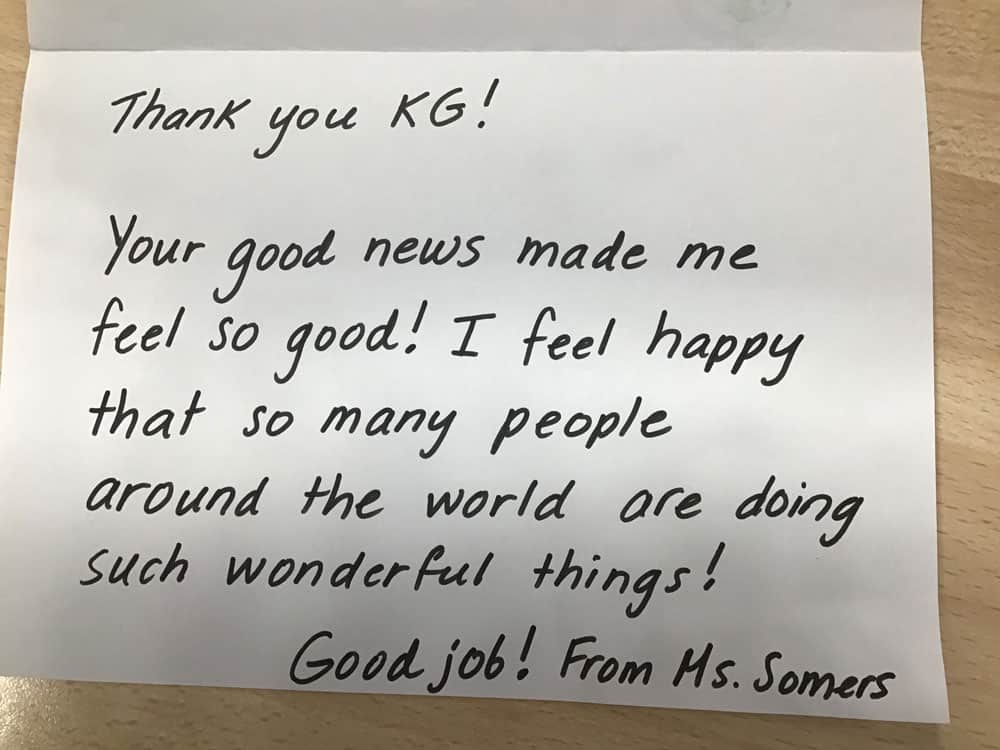 Thank you KG!
Your good news made me
feel so good! I feel happy
that so many people
around the world are doing
such wonderful things!
Good job! From Ms. Somers